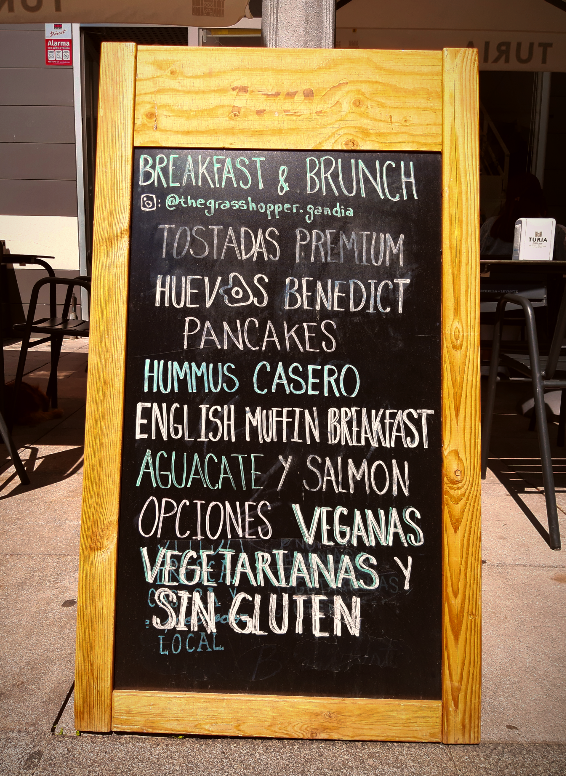 TURIA
Alarma
BREAKFAST & BRUNCH
: @thegrasshopper.gandia
TOSTADAS PREMIUM
HUEVOS BENEDICT
PANCAKES
HUMMUS CASERO
ENGLISH MUFFIN BREAKFAST
AGUACATE Y SALMON
OPCIONES VEGANAS
VEGETARIANAS Y
SIN GLUTEN
LOCAL
TURIA